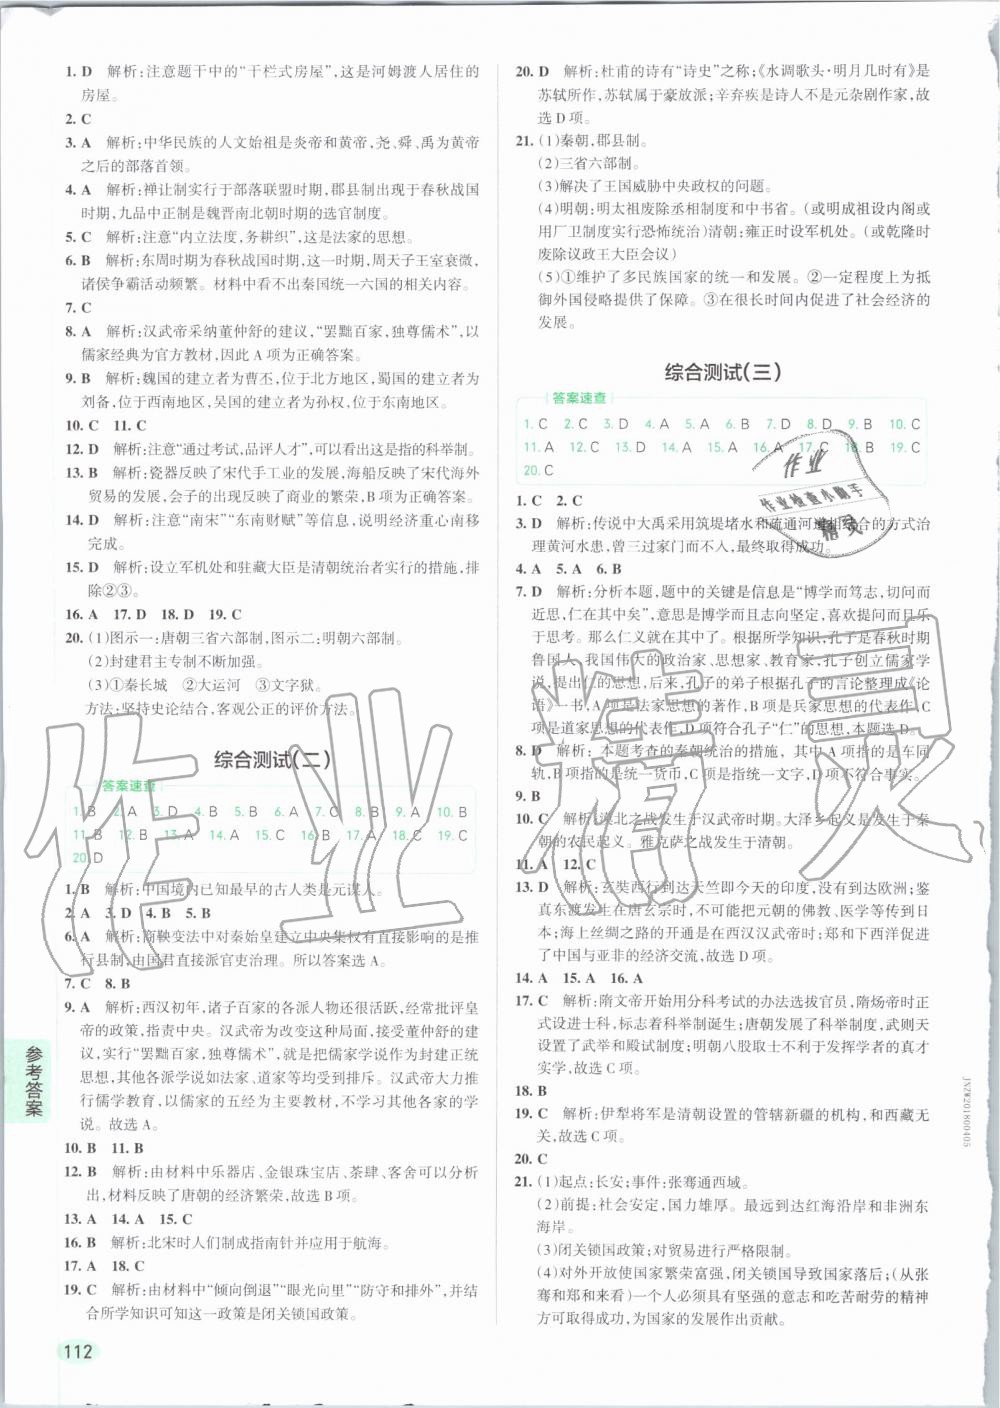 1. D　解析:注意题干中的“干栏式房屋”,这是河姆渡人居住的
房屋。
2. C
3. A　解析:中华民族的人文始祖是炎帝和黄帝,尧、舜、禹为黄帝
之后的部落首领。
4. A　解析:禅让制实行于部落联盟时期,郡县制出现于春秋战国
时期,九品中正制是魏晋南北朝时期的选官制度。
5. C　解析:注意“内立法度,务耕织”,这是法家的思想。
6. B　解析:东周时期为春秋战国时期,这一时期,周天子王室衰微,
诸侯争霸活动频繁。材料中看不出秦国统一六国的相关内容。
7. C
8. A　解析:汉武帝采纳董仲舒的建议,“罢黜百家,独尊儒术”,以
儒家经典为官方教材,因此 A 项为正确答案。
9. B　解析:魏国的建立者为曹丕,位于北方地区,蜀国的建立者为
刘备,位于西南地区,吴国的建立者为孙权,位于东南地区。
10. C　11. C
12. D　解析:注意“通过考试,品评人才”,可以看出这是指的科举制。
13. B　解析:瓷器反映了宋代手工业的发展,海船反映了宋代海外
贸易的发展,会子的出现反映了商业的繁荣,B 项为正确答案。
14. D　解析:注意“南宋”“东南财赋”等信息,说明经济重心南移
完成。
15. D　解析:设立军机处和驻藏大臣是清朝统治者实行的措施,排
除②③。
16. A　17. D　18. D　19. C
20. (1)图示一:唐朝三省六部制,图示二:明朝六部制。
(2)封建君主专制不断加强。
(3)①秦长城　②大运河　③文字狱。
方法:坚持史论结合,客观公正的评价方法。
综合测试(二)
答案速查
1. B　2. A　3. D　4. B　5. B　6. A　7. C　8. B　9. A　10. B
11. B　12. B　13. A　14. A　15. C　16. B　17. A　18. C　19. C
20. D
1. B　解析:中国境内已知最早的古人类是元谋人。
2. A　3. D　4. B　5. B
6. A　解析:商鞅变法中对秦始皇建立中央集权有直接影响的是推
行县制,由国君直接派官吏治理。所以答案选 A。
7. C　8. B
9. A　解析:西汉初年,诸子百家的各派人物还很活跃,经常批评皇
帝的政策,指责中央。汉武帝为改变这种局面,接受董仲舒的建
议,实行“罢黜百家,独尊儒术”,把儒家学说作为封建正统
思想,其他各派学说如法家、道家等均受到排斥。汉武帝大力
推行儒学教育,以儒家的五经为主要教材,不许其他学派学说存
在。故选 A。
10. B　11. B
12. B　解析:由材料中乐器店、金银珠宝店、茶肆、客舍可以分析
出,材料反映了唐朝的经济繁荣,故选 B 项。
13. A　14. A　15. C
16. B　解析:北宋时人们制成指南针并应用于航海。
17. A　18. C
19. C　解析:由材料中“倾向倒退”“眼光向里”“防守和排外”,并结
合所学知识可知这一政策是闭关锁国政策。
参考答案
112
20. D　解析:杜甫的诗有“诗史”之称;《水调歌头·明月几时有》是
苏轼所作,苏轼属于豪放派;辛弃疾是诗人不是元杂剧作家,故选
D 项。
21. (1)秦朝,郡县制。
(2)三省六部制。
(3)解决了王国威胁中央政权的问题。
(4)明朝:明太祖废除丞相制度和中书省。(或明成祖设内阁或
用厂卫制度实行恐怖统治)清朝:雍正时设军机处。(或乾隆时
废除议政王大臣会议)
(5)①维护了多民族国家的统一和发展。②一定程度上为抵
御外国侵略提供了保障。③在很长时间内促进了社会经济的
发展。
综合测试(三)
答案速查
1. C　2. C　3. D　4. A　5. A　6. B　7. D　8. D　9. B　10. C
11. A　12. C　13. D　14. A　15. A　16. A　17. C　18. B　19. C
20. C
1. C　2. C
3. D　解析:传说中大禹采用筑堤堵水和疏通河道相结合的方式治
理黄河水患,曾三过家门而不入,最终取得成功。
4. A　5. A　6. B
7. D　解析:分析本题,题中的关键是信息是“博学而笃志,切问而
近思,仁在其中矣”,意思是博学而且志向坚定,喜欢提问而且乐
于思考。那么仁义就在其中了。根据所学知识,孔子是春秋时期
鲁国人。我国伟大的政治家、思想家、教育家,孔子创立儒家学
说,提出仁的思想,后来,孔子的弟子根据孔子的言论整理成《论
语》一书。A 项是法家思想的著作,B 项是兵家思想的代表作,C
项是道家思想的代表作,D 项符合孔子“仁”的思想,本题选 D。
8. D　解析:本题考查的秦朝统治的措施,其中 A 项指的是车同
轨,B 项指的是统一货币,C 项指的是焚书,D 项不是秦朝措施。
9. B
10. C　解析:漠北之战发生于汉武帝时期。大泽乡起义是发生于秦
朝的农民起义。雅克萨之战发生于清朝。
11. A　12. C
13. D　解析:玄奘西行到达天竺即今天的印度,没有到达欧洲;鉴
真东渡发生在唐玄宗时,不可能把元朝的佛教、医学等传到日
本;海上丝绸之路的开通是在西汉汉武帝时;郑和下西洋促进
了中国与亚非的经济交流,故选 D 项。
14. A　15. A　16. A
17. C　解析:隋文帝开始用分科考试的办法选拔官员,隋炀帝时正
式设进士科,标志着科举制诞生;唐朝发展了科举制,武则天
实行了武举和殿试制度;明朝八股取士不利于发挥学者的真才
实学,故选 C 项。
18. B
19. C　解析:伊犁将军是清朝设置的管辖新疆的机构,和西藏无
关,故选 C 项。
20. C
21. (1)起点:长安;事件:张骞通西域。
(2)前提:社会安定,国力雄厚。最远到达红海沿岸和非洲东
海岸。
(3)闭关锁国政策;对贸易进行严格限制。
(4)对外开放使国家繁荣富强,闭关锁国导致国家落后;(从张
骞和郑和来看)一个人必须具有坚强的意志和吃苦耐劳的精神
方可取得成功,为国家的发展作出贡献。
JNZW201800405
作业
作业检查小助手
精灵
作业精灵